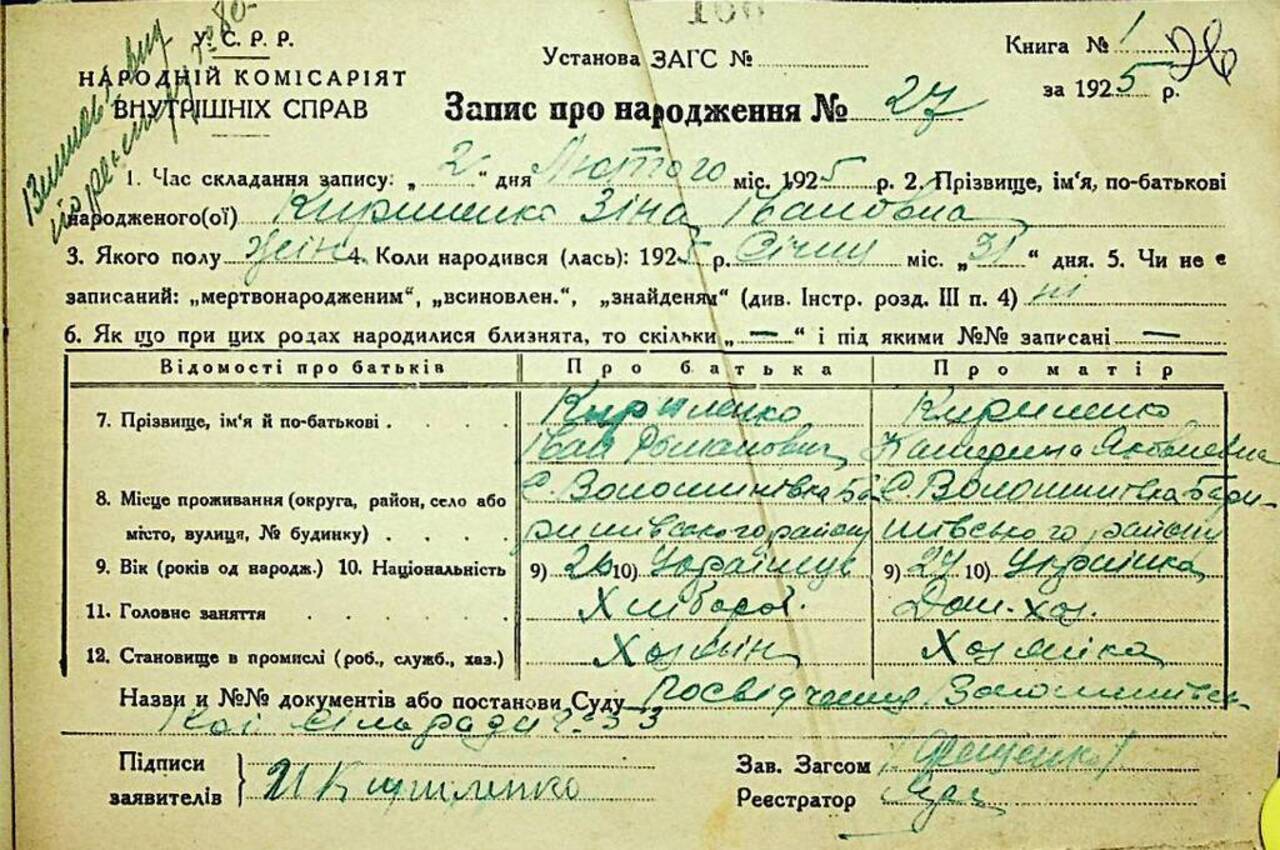 166
У. С. Р. Р.
НАРОДНІЙ КОМІСАРІЯТ
ВНУТРІШНІХ СПРАВ
Установа ЗАГС №
Книга № 1
за 1925 р.
Запис про народження № 27
1. Час складання запису: „ 2 “ дня Лютого міс. 1925 р. 2. Прізвище, ім'я, по-батькові
народженого(ої) Кириленко Зіна Івановна
3. Якого полу жін. 4. Коли народився (лась): 1925 р. Січня міс. „ 31 “ дня. 5. Чи не є
записаний: „мертвонародженим“, „всиновлен.“, „знайденям“ (див. Інстр. розд. III п. 4) ні
6. Як що при цих родах народилися близнята, то скільки „ — “ і під якими №№ записані —
Відомості про батьків Про батька Про матір
7. Прізвище, ім'я й по-батькові Кириленко Кириленко
Іван Романович Катерина Яковлевна
8. Місце проживання (округа, район, село або С. Волошинівка Ба С. Волошинівка Бари-
місто, вулиця, № будинку) ришівського району шівського району
9. Вік (років од народж.) 10. Національність 9) 26 10) Українець 9) 27 10) Українка
11. Головне заняття Хлібороб. Дом. хоз.
12. Становище в промислі (роб., служб., хаз.) Хозяїн Хозяйка
Назви и №№ документів або постанови Суду Посвідчення Волошинівсь-
кої сільради ч. 33
Підписи
заявителів И Кириленко
Зав. Загсом
Реєстратор